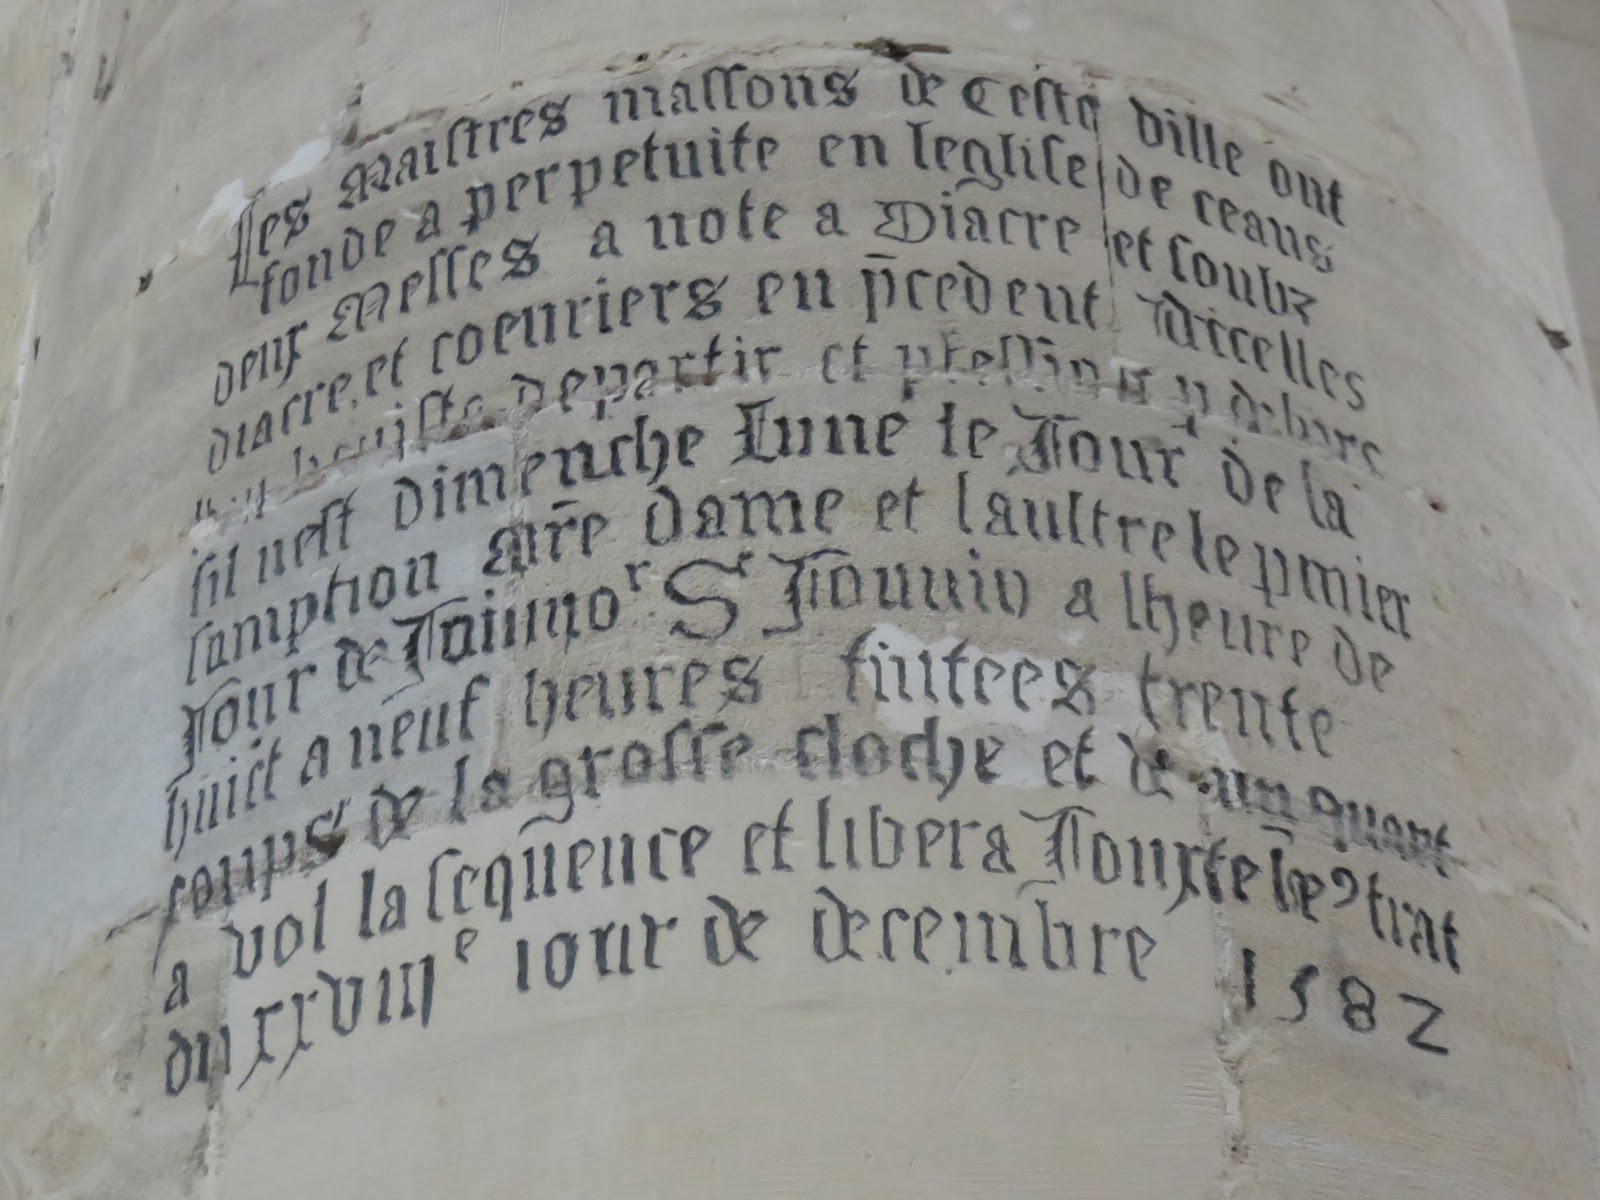 Les Maistres massons de Ceste ville ont
fonde a perpetuite en leglise de ceaus
deux Messes a note a Diacre et soubz
diacre, et coeuriers en p̄cedent Dicelles
departir et dehors
sil nest dimenche Lune le Jour de la
somption Mr̄e Dame et laultre le pmier
Jour de Join no^r S^r Jouuin a lheure de
huict a neuf heures tintees trente
coups de la grosse cloche et de un quart
a vol la seqūence et libera Jouxte trat
du xxviii^e iour de decembre 1582